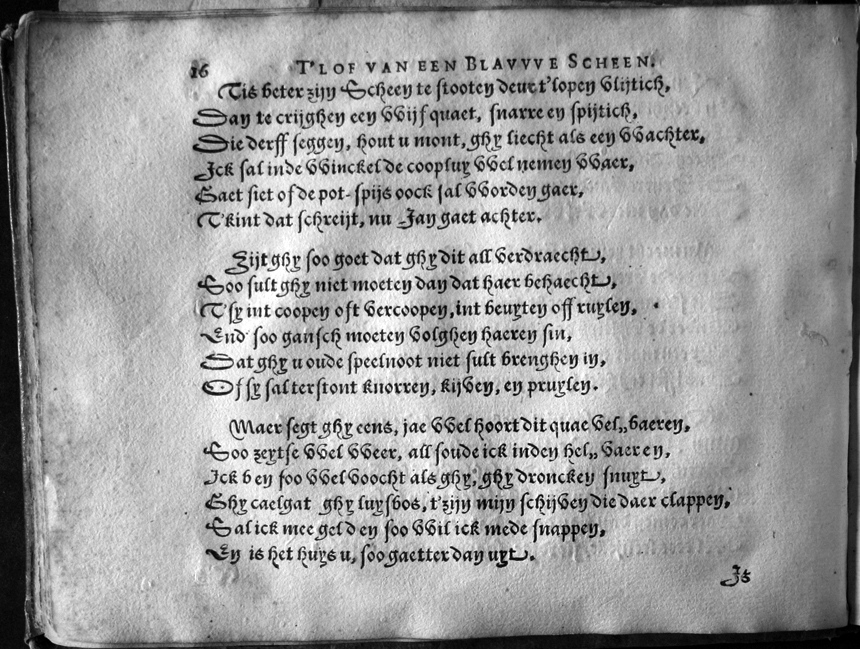 16 T'LOF VAN EEN BLAVVVE SCHEEN.
Tis beter zijn Scheen te stooten deur t'lopen vlijtich,
Dan te crijghen een VVijf quaet, snarre en spijtich,
Die derff seggen, hout u mont, ghy liecht als een VVachter,
Ick sal inde VVinckel de coopluy VVel nemen VVaer,
Gaet siet of de pot-spijs oock sal VVorden gaer,
T'kint dat schreijt, nu Jan gaet achter.
Zijt ghy soo goet dat ghy dit all verdraecht,
Soo sult ghy niet moeten dan dat haer behaecht,
T'sy int coopen oft vercoopen, int beuyten off ruylen,
End soo gansch moeten volghen haeren sin,
Dat ghy u oude speelnoot niet sult brenghen in,
Of sy sal terstont knorren, kijven, en pruylen.
Maer segt ghy eens, jae VVel hoort dit quae vel„ baeren,
Soo zeytse VVel VVeer, all soude ick inden hel„ vaeren,
Ick ben soo VVel voocht als ghy, ghy droncken snuyt,
Ghy caelgat ghy luysbos, t'zijn mijn schijven die daer clappen,
Sal ick mee gelden soo VVil ick mede snappen,
En is het huys u, soo gaetter dan uyt.
Is